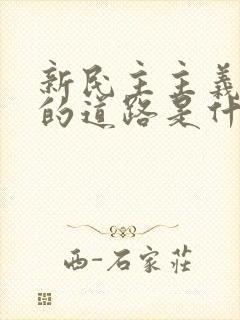 新民主主義
的道路是什
西-石家莊